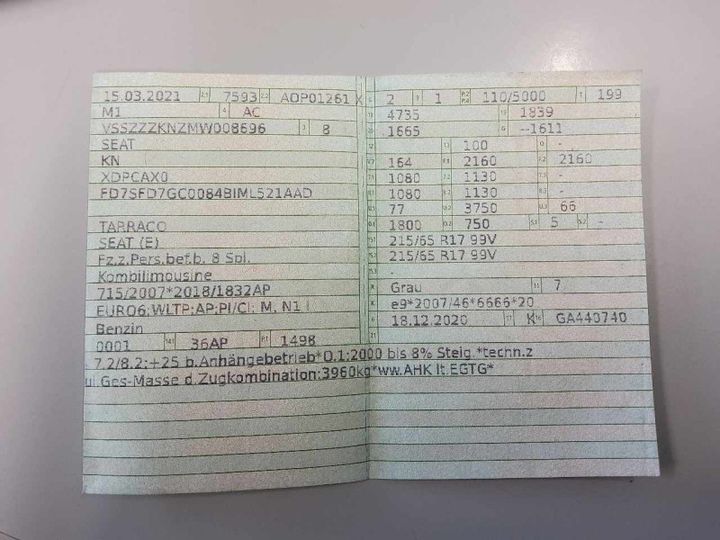 15.03.2021 7593 AOP01261 X
M1 AC
VSSZZZKNZMW008696 8
SEAT
KN
XDPCAX0
FD7SFD7GC0084BIML521AAD
TARRACO
SEAT (E)
Fz.z.Pers.bef.b. 8 Spl.
Kombilimousine
715/2007*2018/1832AP
EURO6;WLTP;AP;PI/CI; M, N1 I
Benzin
0001 36AP 1498
2 1 110/5000 199
4735 1839
1665 --1611
100 -
164 2160 2160
1080 1130 -
1080 1130 -
77 3750 66
1800 750 5 -
215/65 R17 99V
215/65 R17 99V
Grau 7
e9*2007/46*6666*20
18.12.2020 K GA440740
7.2/8.2:+25 b.Anhängebetrieb*O.1:2000 bis 8% Steig.*techn.z
ul.Ges-Masse d.Zugkombination:3960kg*ww.AHK lt.EGTG*